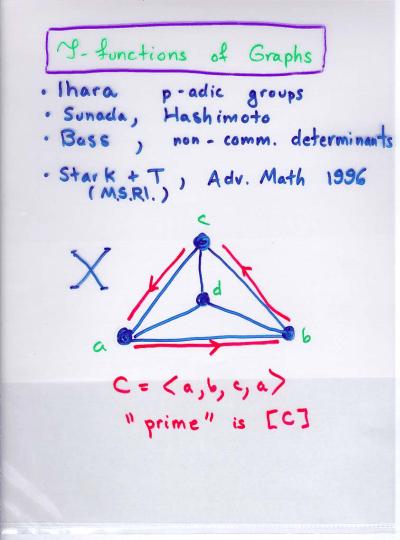 ζ-functions of Graphs
• Ihara p-adic groups
• Sunada, Hashimoto
• Bass, non-comm. determinants
• Stark + T, Adv. Math 1996
(M.S.R.I.)
c
X
d
a
b
C = <a,b,c,a>
"prime" is [C]